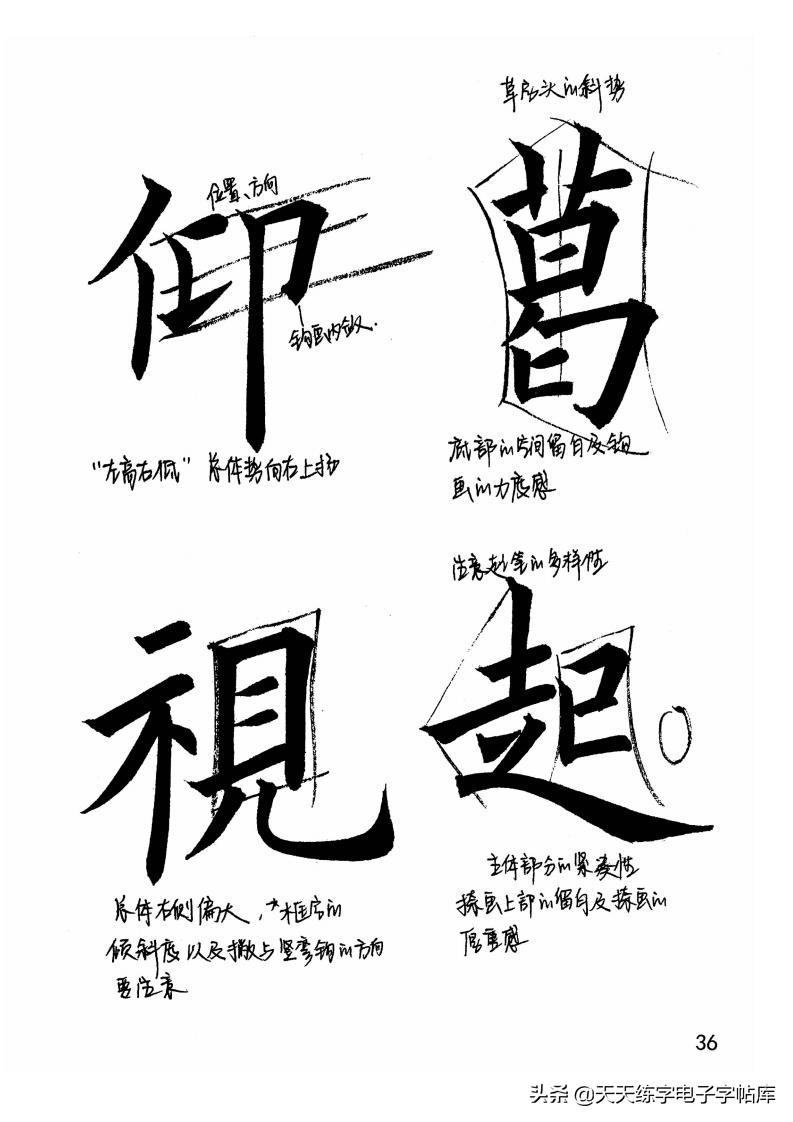 草字头的斜势
位置、方向
仰
葛
钩画内敛.
"左高右低" 总体势向右上扬
底部的空间留白及钩
画的力度感
注意起笔的多样性
視
起
总体右侧偏大，"木框"的
倾斜度以及撇与竖弯钩的方向
要注意
主体部分的紧凑性
捺画上部的留白及捺画的
厚重感
36
头条 @天天练字电子字帖库